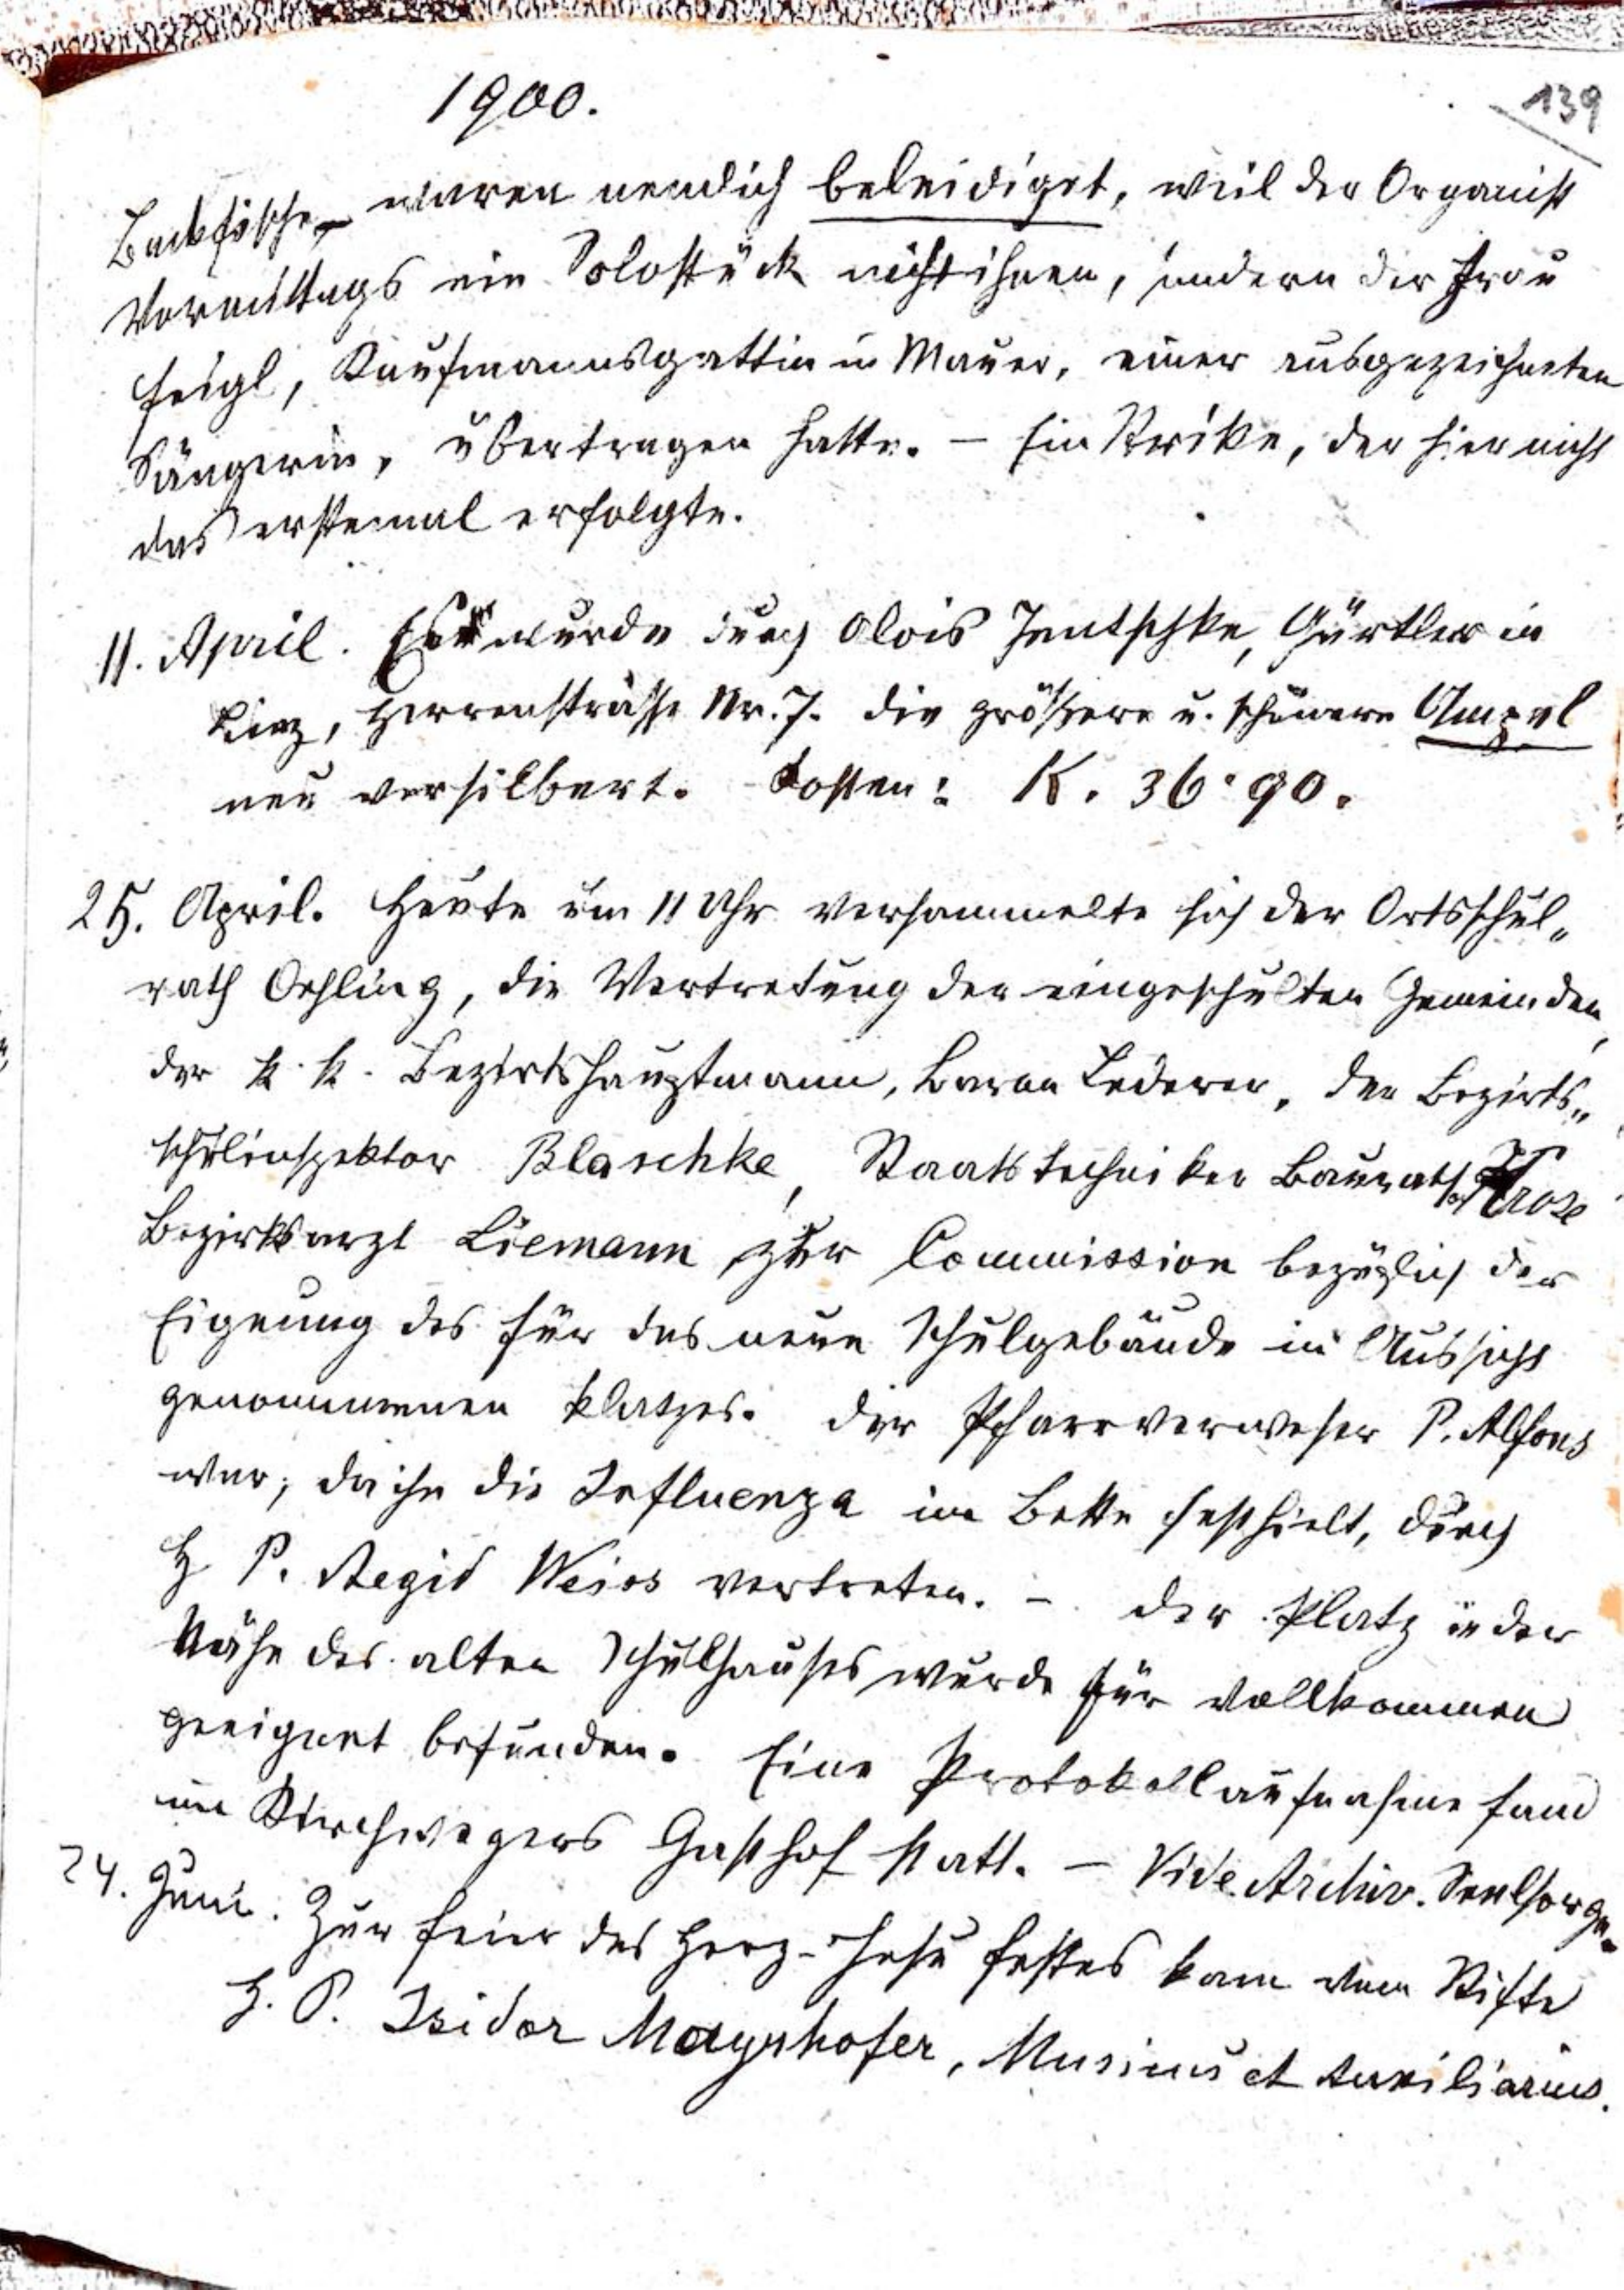 1900.
139
Backfische – waren nemlich beleidiget, weil der Organist
Vormittags ein Solostück nicht ihnen, sondern der Frau
Feigl, Kaufmannsgattin in Mauer, einer ausgezeichneten
Sängerin, übertragen hatte. – Ein Strike, der hier nicht
das erstemal erfolgte.
11. April. Es wurde durch Alois Jentschke, Gürtler in
Linz, Herrenstrasse Nr. 7. die größere u. schönere Ampel
neu versilbert. Kosten: K. 36·90.
25. April. Heute um 11 Uhr versammelte sich der Ortsschul„
rath Oehling, die Vertretung der eingeschulten Gemeinden,
der k. k. Bezirkshauptmann, Baron Lederer, der Bezirks„
schulinspektor Blaschke, Staatstechniker Baurath
Bezirksarzt Liemann zur Commission bezüglich der
Eignung des für das neue Schulgebäude in Aussicht
genommenen Platzes. Der Pfarrverweser P. Alfons
war, da ihn die Influenza im Bette festhielt, durch
H P. Aegid Weiss vertreten. – Der Platz in der
Nähe des alten Schulhauses wurde für vollkommen
geeignet befunden. Eine Protokollaufnahme fand
im Kirchwegers Gasthof statt. – Vide Archiv. Seelsorge.
24. Juni. Zur Feier des Herz-Jesu Festes kam vom Stifte
H. P. Isidor Mayrhofer, Musicus et Auxiliarius.